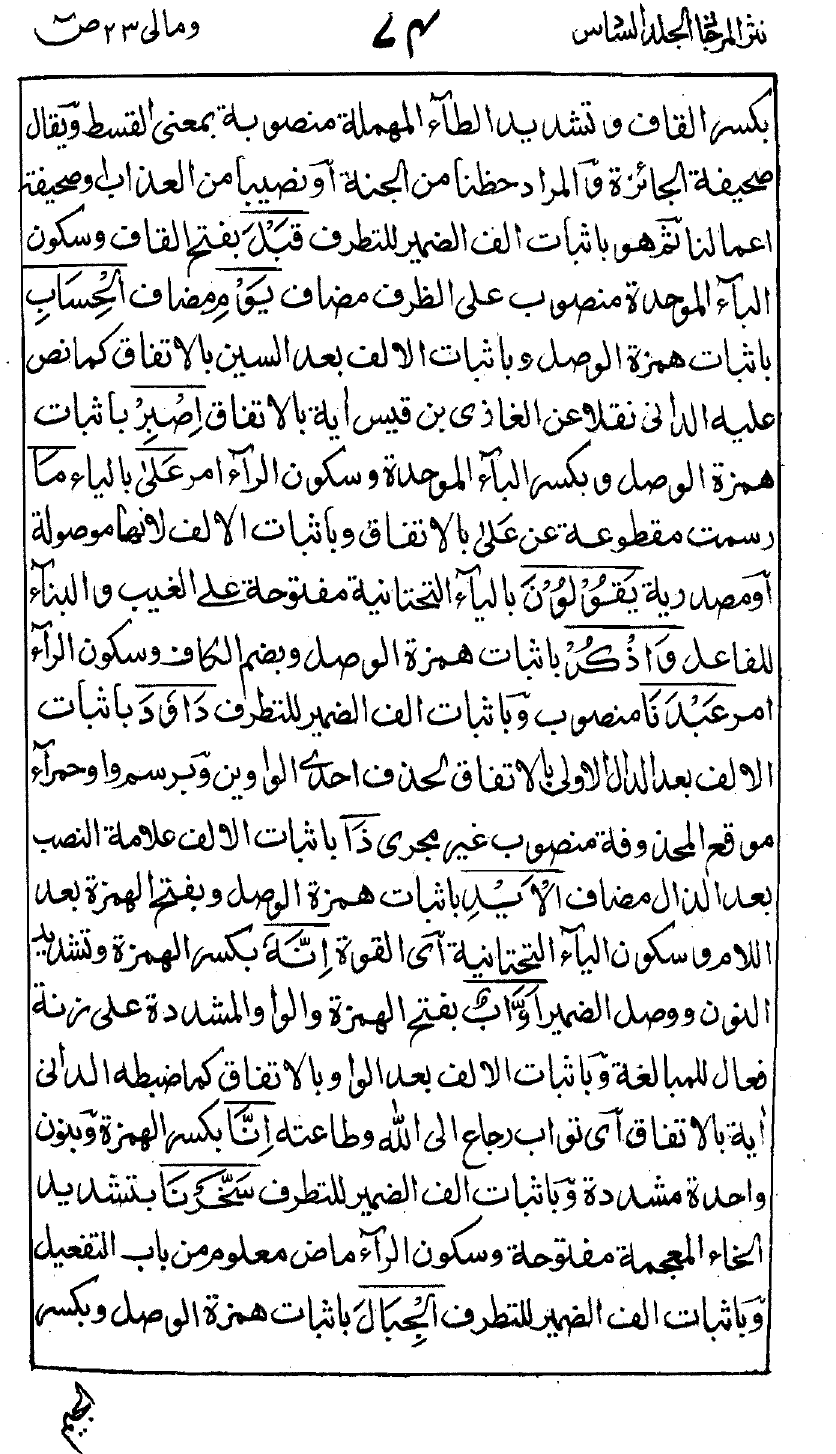 نثر المرجان الجلد السادس ٧٤ ومالى ٢٣ ص
بكسر القاف وتشديد الطآء المهملة منصوبة بمعنى القسط ويقال
صحيفة الجائزة وّالمراد حظنا من الجنة اَونصيبا من العذاب اوصحيفة
اعمالنا ثمّ هو باثبات الف الضمير للتطرف قَبْلَ بفتح القاف وسكون
البآء الموحدة منصوب على الظرف مضاف يَوْمِ مضاف الْحِسَابِ
باثبات همزة الوصل وباثبات الالف بعد السين بالاتفاق كمانص
عليه الدانى نقلا عن الغازى بن قيس اٰية بالاتفاق اِصْبِرْ باثبات
همزة الوصل وبكسر البآء الموحدة وسكون الرآء امر عَلٰى بالياء مَا
رسمت مقطوعة عن عَلٰى بالاتفاق وباثبات الالف لانها موصولة
اَومصدرية يَقُوْلُوْنَ باليآء التحتانية مفتوحة على الغيب والبنآء
للفاعل وَاذْكُرْ باثبات همزة الوصل وبضم الكاف وسكون الرآء
امر عَبْدَنَا منصوب وّباثبات الف الضمير للتطرف دَاوٗدَ باثبات
الالف بعد الدال الاولى بالاتفاق لحذف احدى الواوين وّبرسم واو حمرآء
موقع المحذوفة منصوب غير مجرى ذَا باثبات الالف علامة النصب
بعد الذال مضاف الْاَيْدِ باثبات همزة الوصل وبفتح الهمزة بعد
اللام وسكون اليآء التحتانية اَى القوة اِنَّهٗ بكسر الهمزة وتشديد
النون ووصل الضمير اَوَّابٌ بفتح الهمزة والواو المشددة على زنة
فعال للمبالغة وّباثبات الالف بعد الواو بالاتفاق كما ضبطه الدانى
اٰية بالاتفاق اَى تواب رجاع الى الله وطاعته اِنَّا بكسر الهمزة وّبنون
واحدة مشددة وّباثبات الف الضمير للتطرف سَخَّرْنَا بتشديد
الخاء المعجمة مفتوحة وسكون الرآء ماض معلوم من باب التفعيل
وّباثبات الف الضمير للتطرف الْجِبَالَ باثبات همزة الوصل وبكسر
الجيم